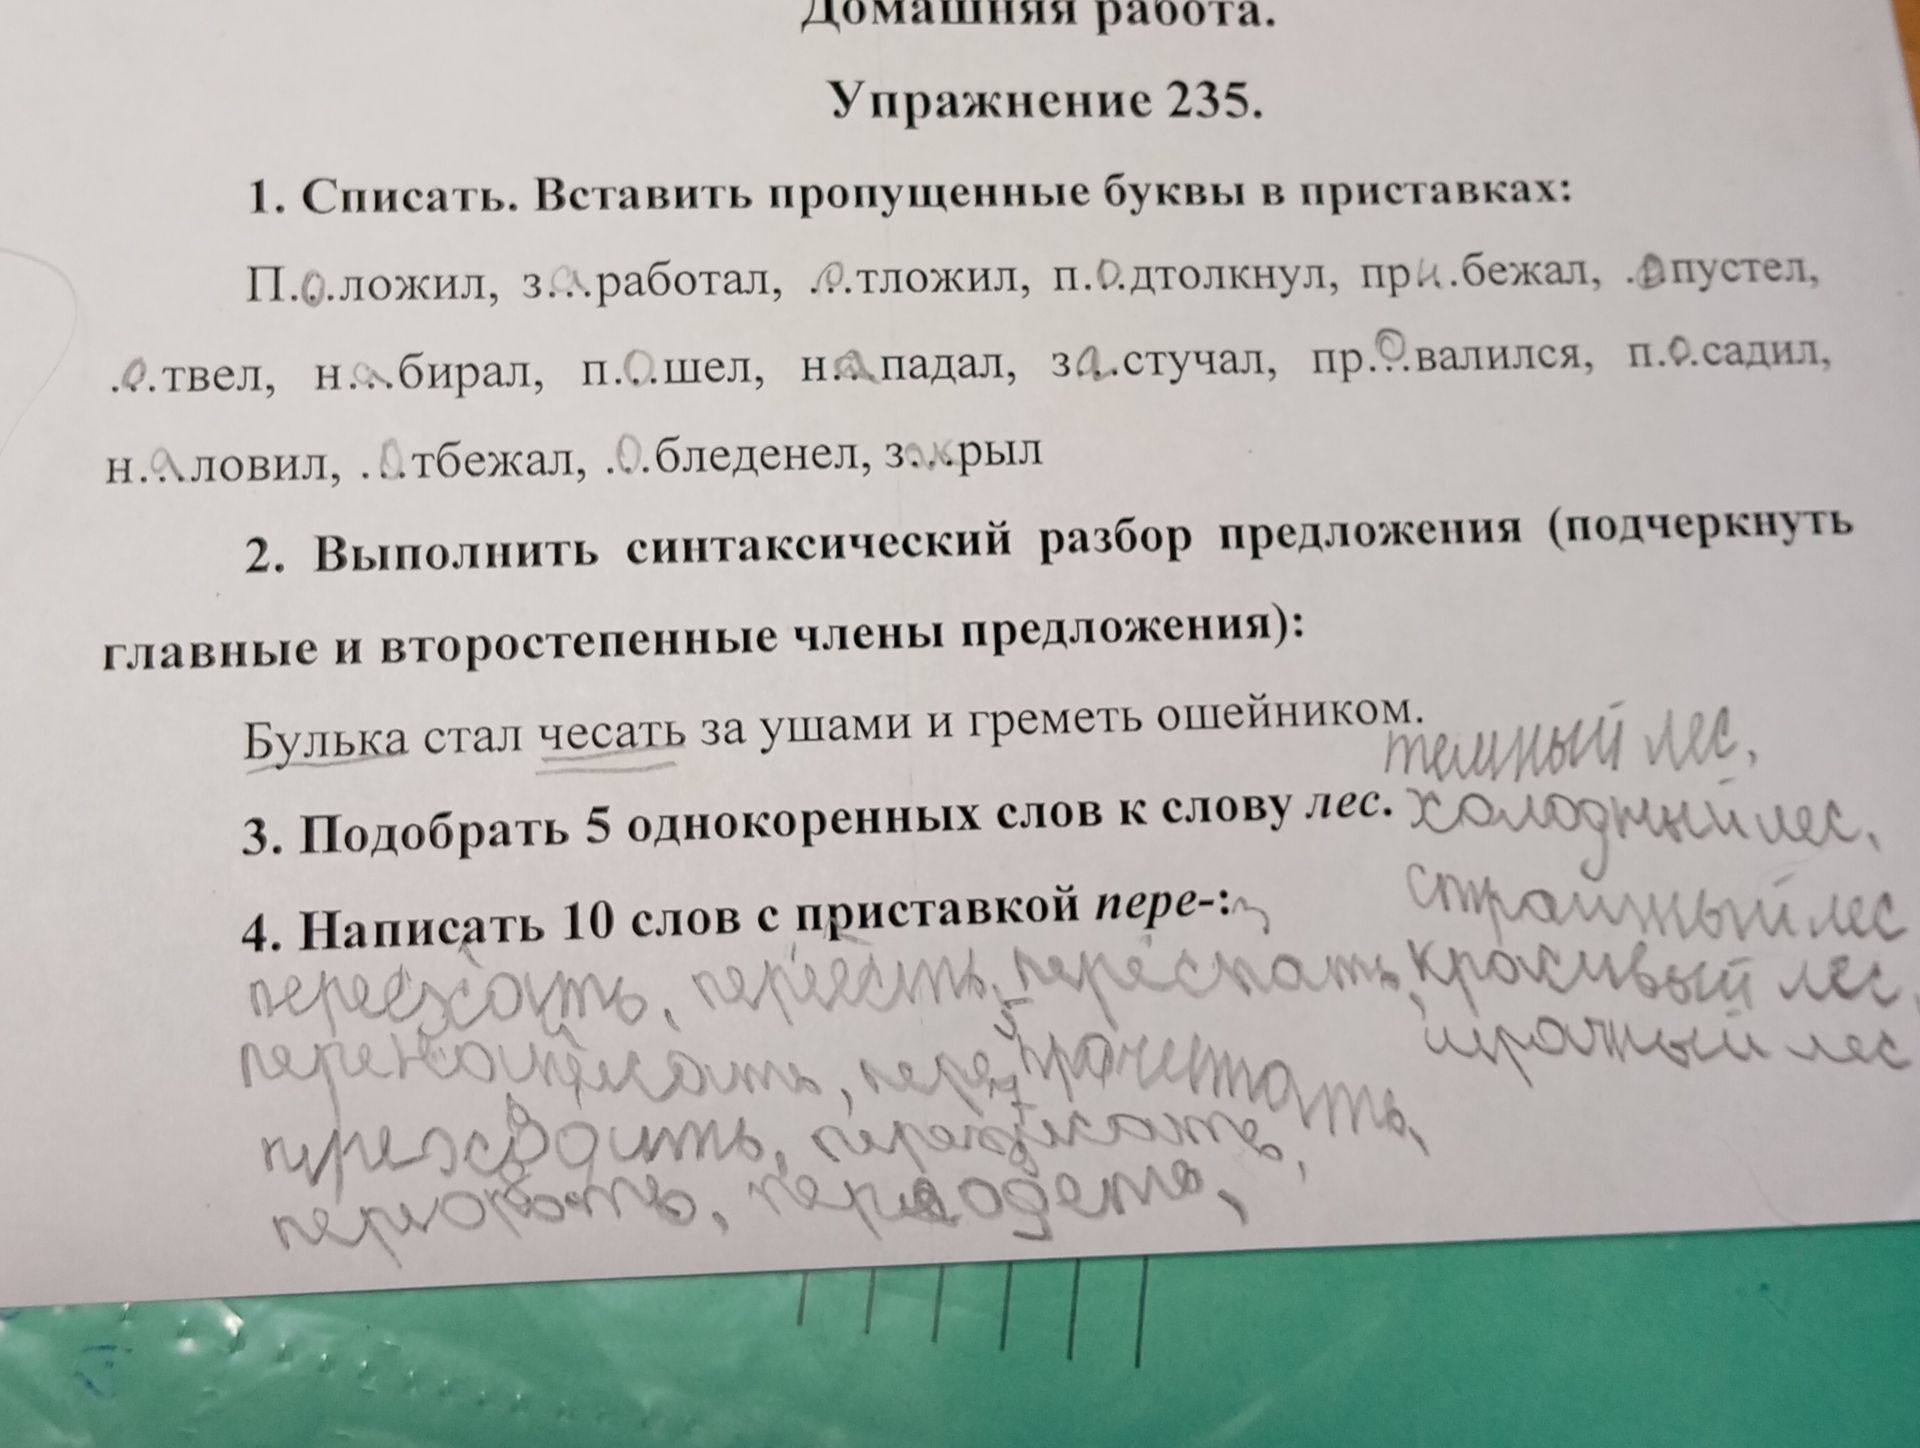 Домашняя работа.
Упражнение 235.
1. Списать. Вставить пропущенные буквы в приставках:
П.о.ложил, з.а.работал, .о.тложил, п.о.дтолкнул, при.бежал, .опустел,
.о.твел, н.а.бирал, п.о.шел, н.а.падал, за.стучал, пр.о.валился, п.о.садил,
н.а.ловил, .о.тбежал, .о.бледенел, з..к.рыл
2. Выполнить синтаксический разбор предложения (подчеркнуть
главные и второстепенные члены предложения):
Булька стал чесать за ушами и греметь ошейником.
темный лес,
3. Подобрать 5 однокоренных слов к слову лес. холодный лес,
страшный лес
4. Написать 10 слов с приставкой пере-:
переежать, переесть, переспать, красивый лес,
мрачный лес
прочитать,
переходить, 
переодеть,